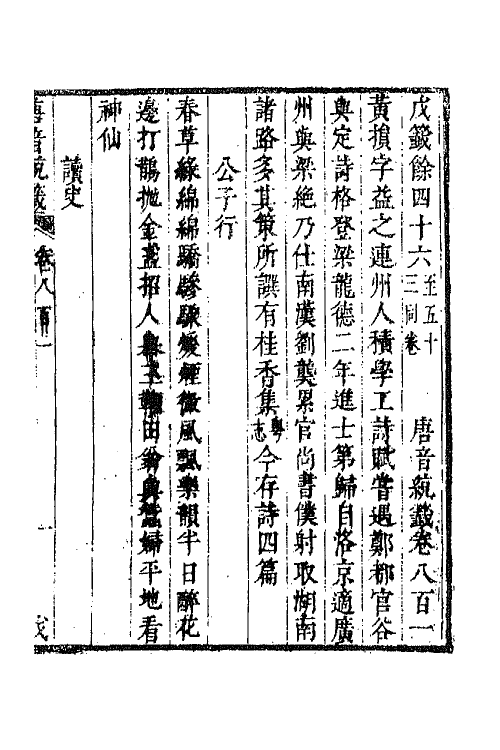 戊籖餘四十六至五十三同卷 唐音統籖卷八百一
黃損字益之連州人積學工詩賦嘗遇鄭都官谷
與定詩格登梁龍德二年進士第歸自洛京適廣
州與梁絶乃仕南漢劉龑累官尚書僕射取湖南
諸路多其策所譔有桂香集粤志今存詩四篇
公子行
春草綠綿綿驕驂驟煖煙微風飄樂韻半日醉花
邊打鵲抛金盞招人舉玉鞭田翁與蠶婦平地看
神仙
讀史
唐音統籖 卷八百一 一 戊